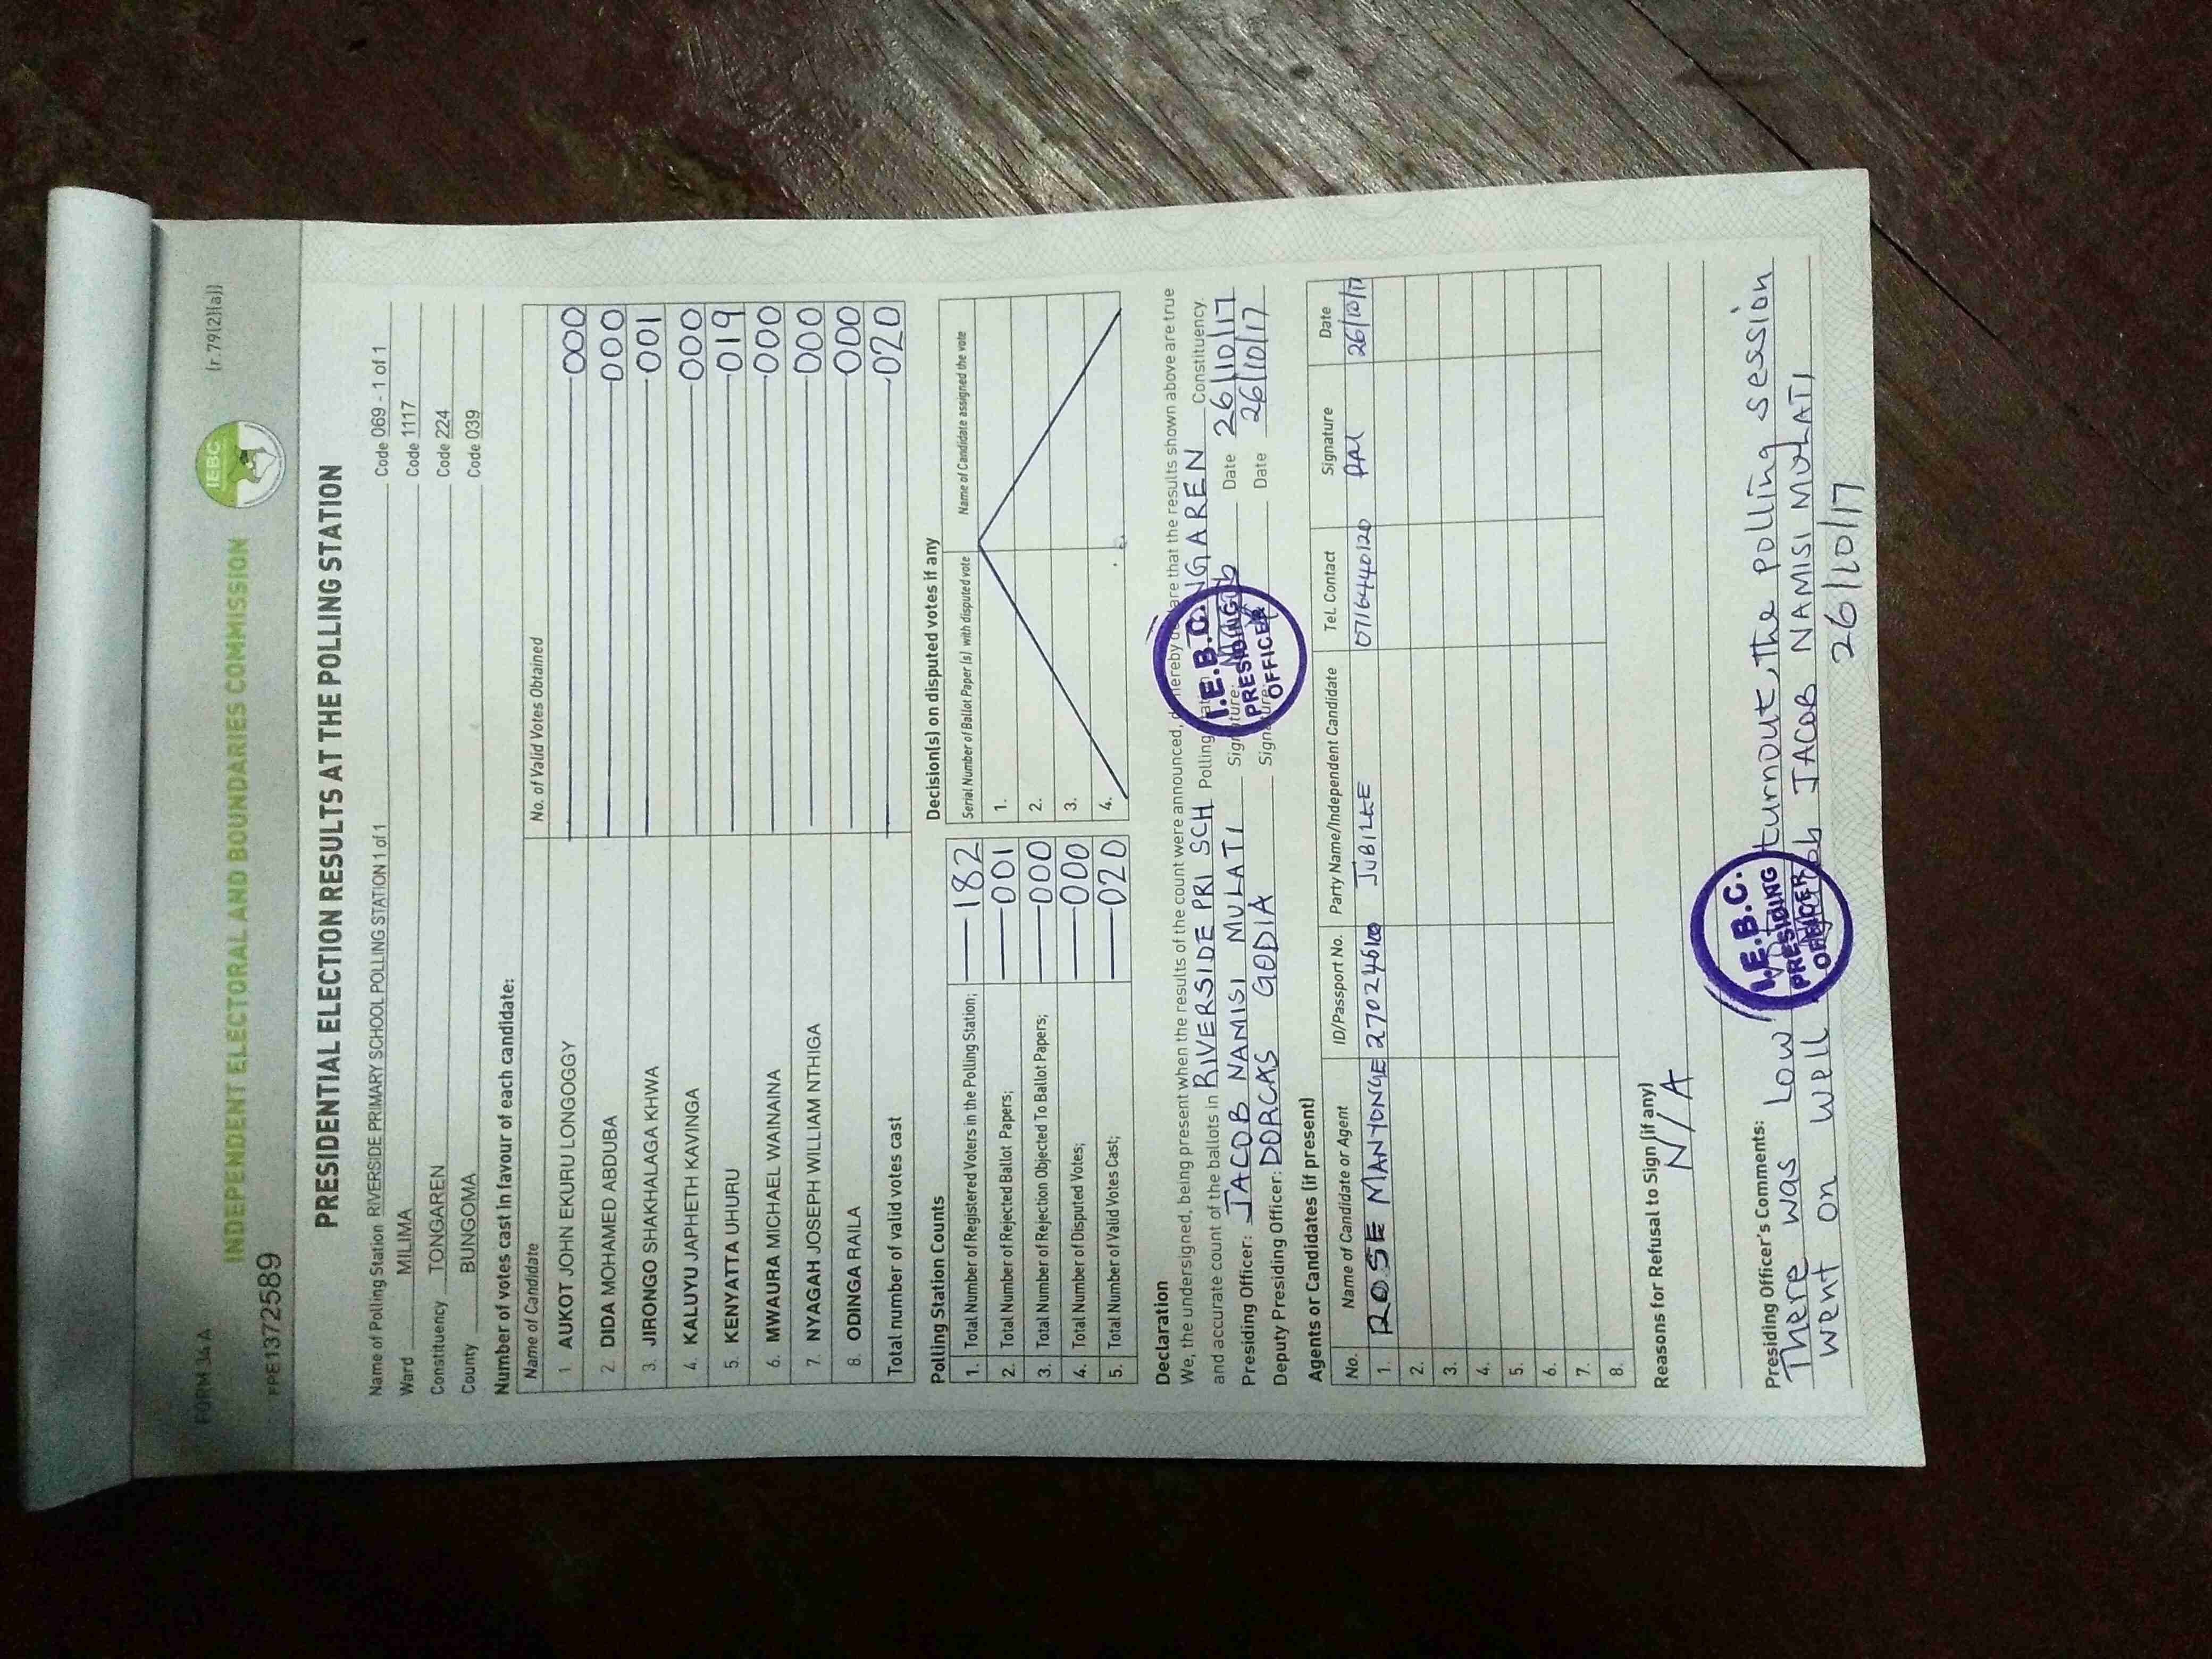 FORM 34A
(r.79(2)(a))
IEBC
INDEPENDENT ELECTORAL AND BOUNDARIES COMMISSION
PPE1372589
PRESIDENTIAL ELECTION RESULTS AT THE POLLING STATION
Name of Polling Station RIVERSIDE PRIMARY SCHOOL POLLING STATION 1 of 1 Code 069 - 1 of 1
Ward MILIMA Code 1117
Constituency TONGAREN Code 224
County BUNGOMA Code 039
Number of votes cast in favour of each candidate:
Name of Candidate No. of Valid Votes Obtained
1 AUKOT JOHN EKURU LONGOGGY 000
2. DIDA MOHAMED ABDUBA 000
3. JIRONGO SHAKHALAGA KHWA 001
4. KALUYU JAPHETH KAVINGA 000
5. KENYATTA UHURU 019
6. MWAURA MICHAEL WAINAINA 000
7. NYAGAH JOSEPH WILLIAM NTHIGA 000
8. ODINGA RAILA 000
Total number of valid votes cast 020
Polling Station Counts
1. Total Number of Registered Voters in the Polling Station; 182
2. Total Number of Rejected Ballot Papers; 001
3. Total Number of Rejection Objected To Ballot Papers; 000
4. Total Number of Disputed Votes; 000
5. Total Number of Valid Votes Cast; 020
Decision(s) on disputed votes if any
Serial Number of Ballot Paper(s) with disputed vote Name of Candidate assigned the vote
1.
2.
3.
4.
Declaration
We, the undersigned, being present when the results of the count were announced, do hereby declare that the results shown above are true
and accurate count of the ballots in RIVERSIDE PRI SCH Polling TONGAREN Constituency.
Presiding Officer: JACOB NAMISI MULATI Signature: Date 26/10/17
Deputy Presiding Officer: DORCAS GODIA Signature: Date 26/10/17
I.E.B.C.
PRESIDING
OFFICER
Agents or Candidates (if present)
No. Name of Candidate or Agent ID/Passport No. Party Name/Independent Candidate Tel. Contact Signature Date
1. ROSE MANYONGE JUBILEE 0716440120 26/10/17
2.
3.
4.
5.
6.
7.
8.
Reasons for Refusal to Sign (if any)
N/A
Presiding Officer's Comments:
There was Low turnout, the polling session
went on well JACOB NAMISI MULATI,
26/10/17
I.E.B.C.
PRESIDING
OFFICER